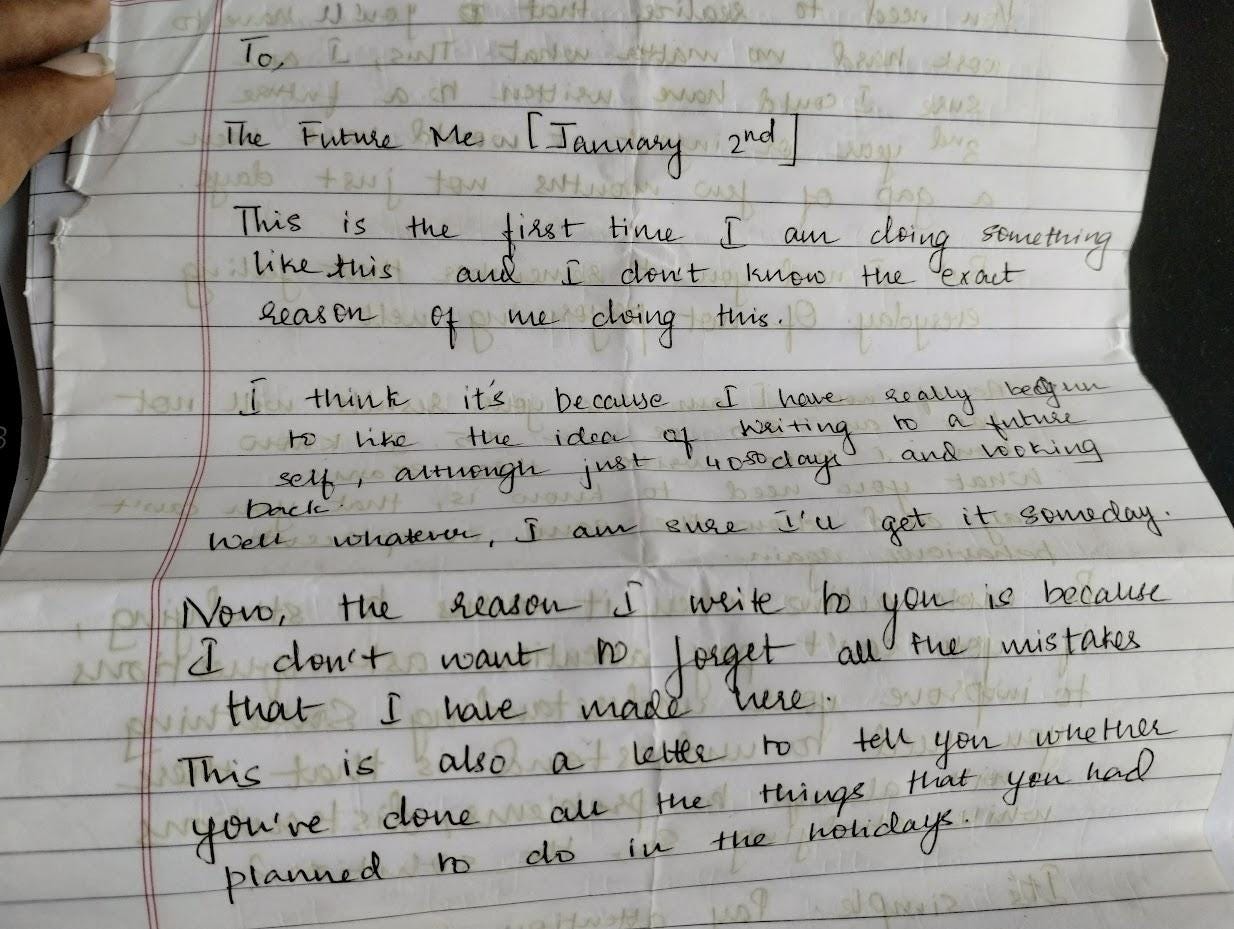 To,
The Future Me [January 2nd]
This is the first time I am doing something
like this and I don't know the exact
reason of me doing this.
I think it's because I have really begun
to like the idea of writing to a future
self, although just 40 50 days and looking
back.
Well whatever, I am sure I'll get it someday.
Now, the reason I write to you is because
I don't want to forget all the mistakes
that I have made here.
This is also a letter to tell you whether
you've done all the things that you had
planned to do in the holidays.